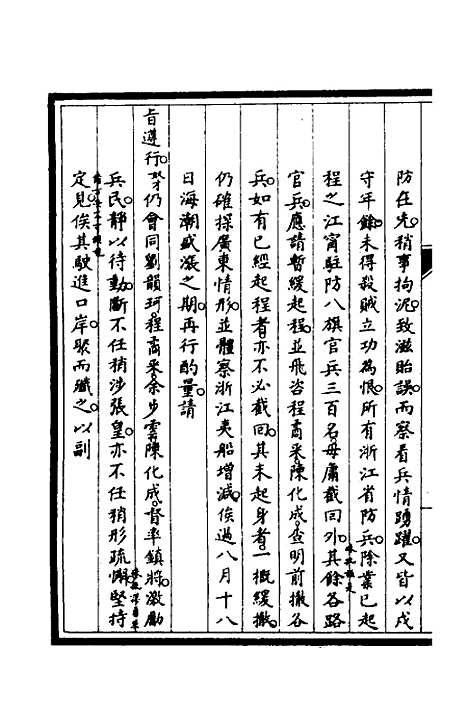 防在先。稍事拘泥。致滋貽誤。而察看兵情踴躍。又皆以戍
守年餘。未得殺賊立功為恨。所有浙江省防兵。除業已起
程之江甯駐防八旗官兵三百名。毋庸截回外。其餘各路
官兵。應請暫緩起程。並飛咨程矞采。陳化成。查明前撤各
兵。如有已經起程者。亦不必截回。其未起身者。一概緩撤。
仍確探廣東情形。並體察浙江夷船增減。俟過八月十八
日海潮盛漲之期。再行酌量請
旨遵行。奴才仍會同劉韻珂。程矞采。余步雲。陳化成。督率鎮將。激勵
兵民。靜以待動。斷不任稍涉張皇。亦不任稍形疏懈。堅持
定見。俟其駛進口岸。聚而殲之。以副